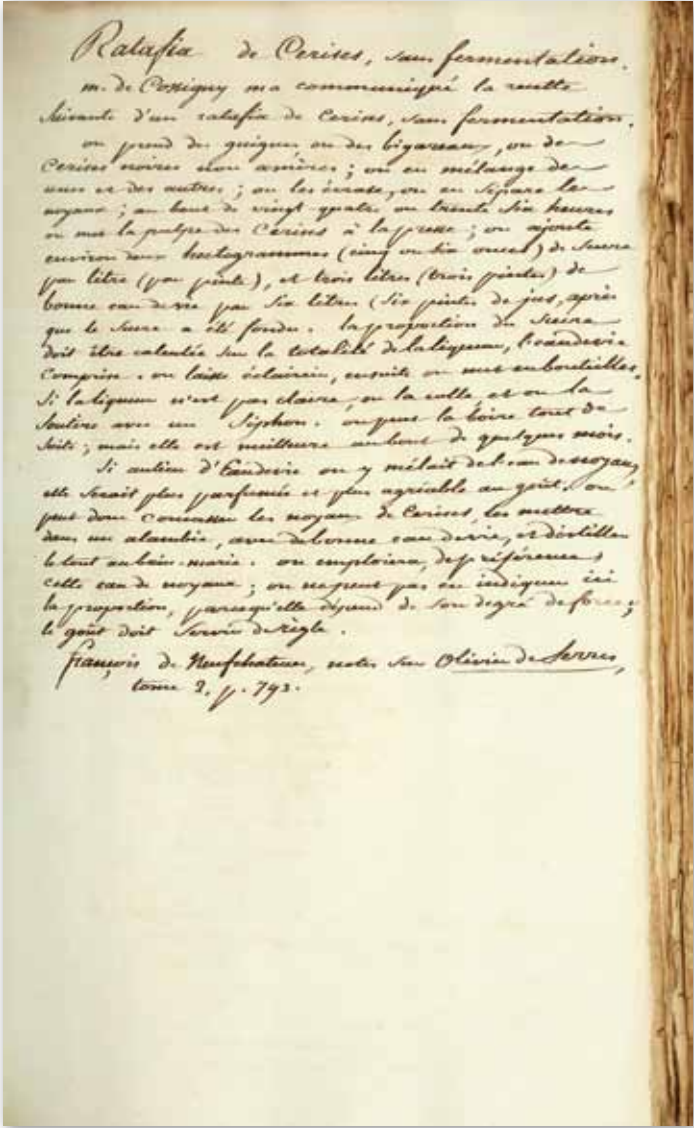 Ratafia de Cerises, sans fermentation.
m. de Cossigny m'a communiqué la recette
suivante d'un ratafia de Cerises, sans fermentation.
on prend des guignes ou des bigareaux, ou de
Cerises noires non amères ; ou en mélange de
unes et des autres ; on les écrase, on en sépare les
noyaux ; au bout de vingt-quatre ou trente six heures
on met la pulpe des Cerises à la presse ; on ajoute
environ deux hectogrammes (cinq ou six onces) de Sucre
par litre (par pinte), et trois litres (trois pintes) de
bonne eau de vie par Six litres (Six pintes de jus, après
que le Sucre a été fondu. la proportion du Sucre
doit être calculée sur la totalité de la liqueur, l'eaudevie
Comprise. on laisse éclaircir, ensuite on met en bouteilles.
Si la liqueur n'est pas claire, on la colle, et on la
Soutire avec un Siphon. on peut la boire tout de
Suite ; mais elle est meilleure au bout de quelques mois.
Si aulieu d'Eaudevie on y mélait de l'eau de noyaux,
elle Serait plus parfumée et plus agréable au goût. on
peut donc concasser les noyaux de Cerises, les mettre
dans un alambic, avec de bonne eau de vie, et distiller
le tout au bain-marie. on emploiera, de préférence
cette eau de noyaux ; on ne peut pas en indiquer ici
la proportion, parcequ'elle dépend de son degré de force ;
le goût doit Servir de règle.
françois de Neufchateau, notes sur Olivier de Serres,
tome 2. p. 793.